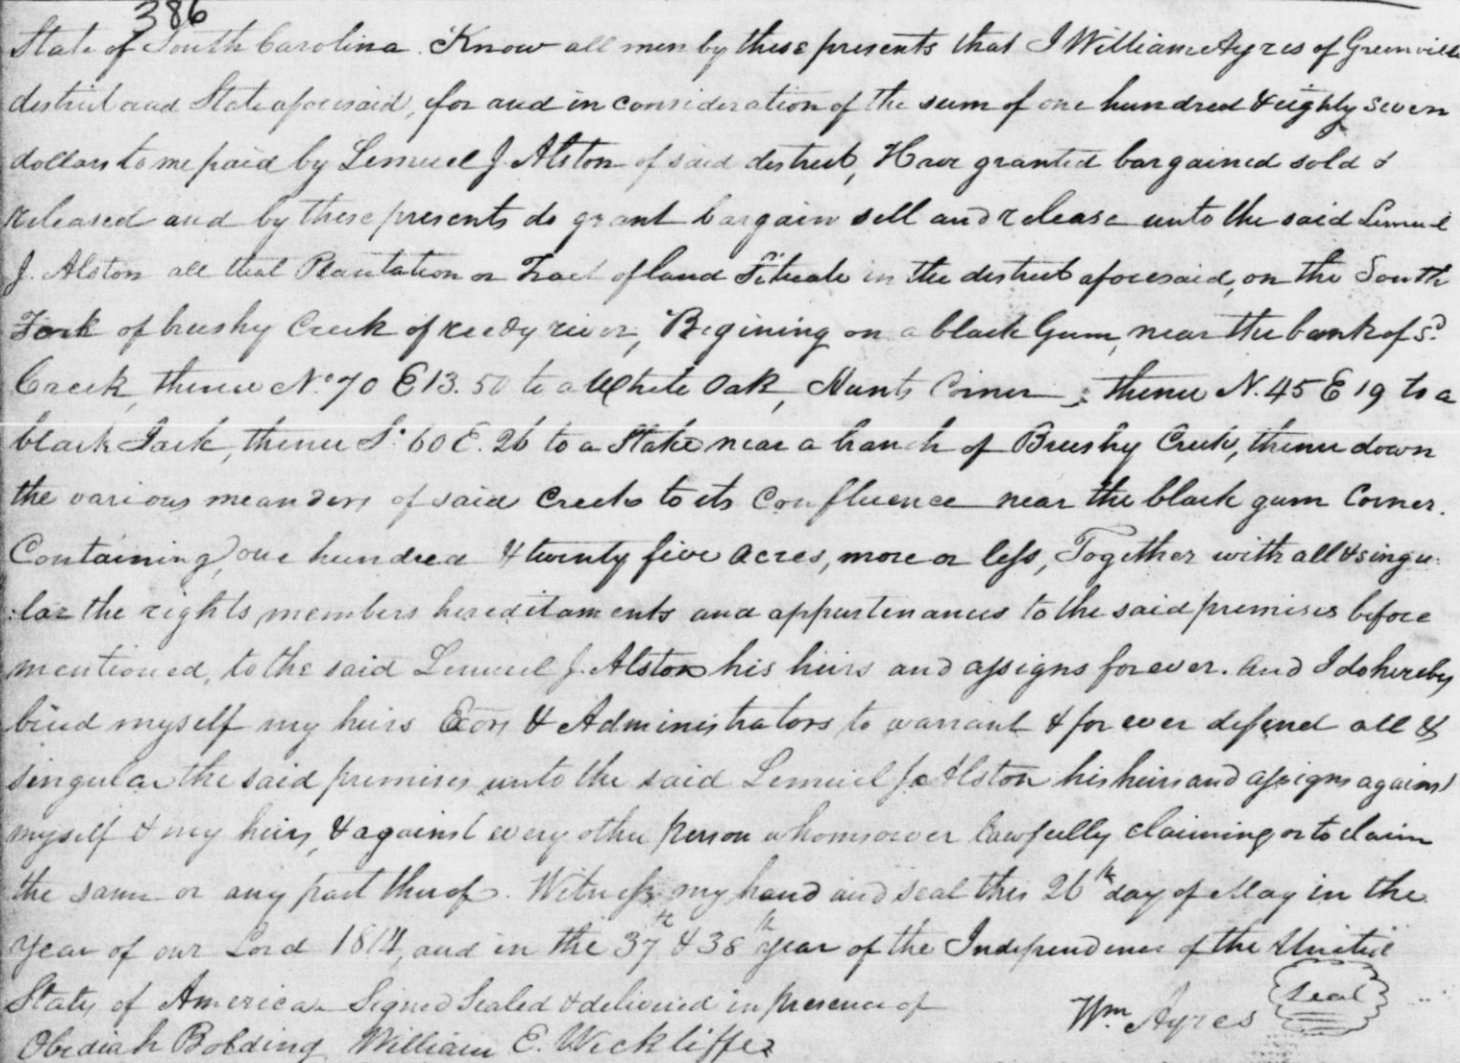 386
State of South Carolina. Know all men by these presents that I William Ayres of Greenville
district and State aforesaid, for and in consideration of the sum of one hundred & eighty seven
dollars to me paid by Lemuel J. Alston of said district, Have granted bargained sold &
released and by these presents do grant bargain sell and release unto the said Lemuel
J. Alston all that Plantation or Tract of land Situate in the district aforesaid, on the South
Fork of brushy Creek of reedy river, Begining on a black Gum, near the bank of sd.
Creek, thence No. 70 E 13.50 to a White Oak, Hunts Corner; thence N. 45 E 19 to a
black Jack, thence S. 60 E. 26 to a Stake near a branch of Brushy Creek, thence down
the various meanders of said Creek to its Confluence near the black gum Corner.
Containing, one hundred & twenty five acres, more or less, Together with all & singu:
:lar the rights members hereditaments and appurtenances to the said premises before
mentioned, to the said Lemuel J. Alston his heirs and assigns forever. And I do hereby
bind myself my heirs Exors & Administrators to warrant & for ever defend all &
singular the said premises unto the said Lemuel J. Alston his heirs and assigns against
myself & my heirs, & against every other person whomsoever lawfully claiming or to claim
the same or any part thereof. Witness my hand and seal this 26th day of May in the
Year of our Lord 1814, and in the 37th & 38th year of the Independence of the United
States of America. Signed Sealed & delivered in presence of
Wm Ayres Seal
Obediah Bolding William E. Wickliffe